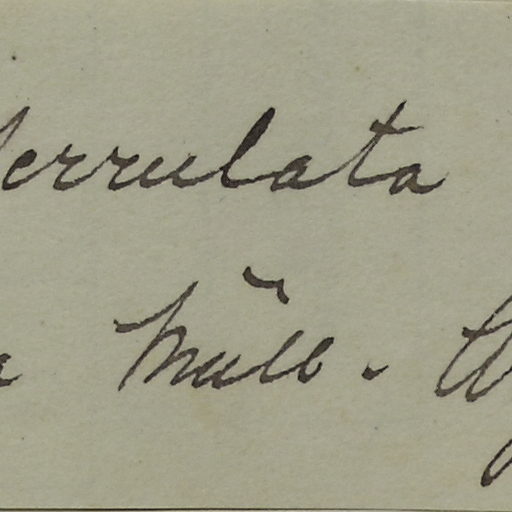 serrulata
Müll.